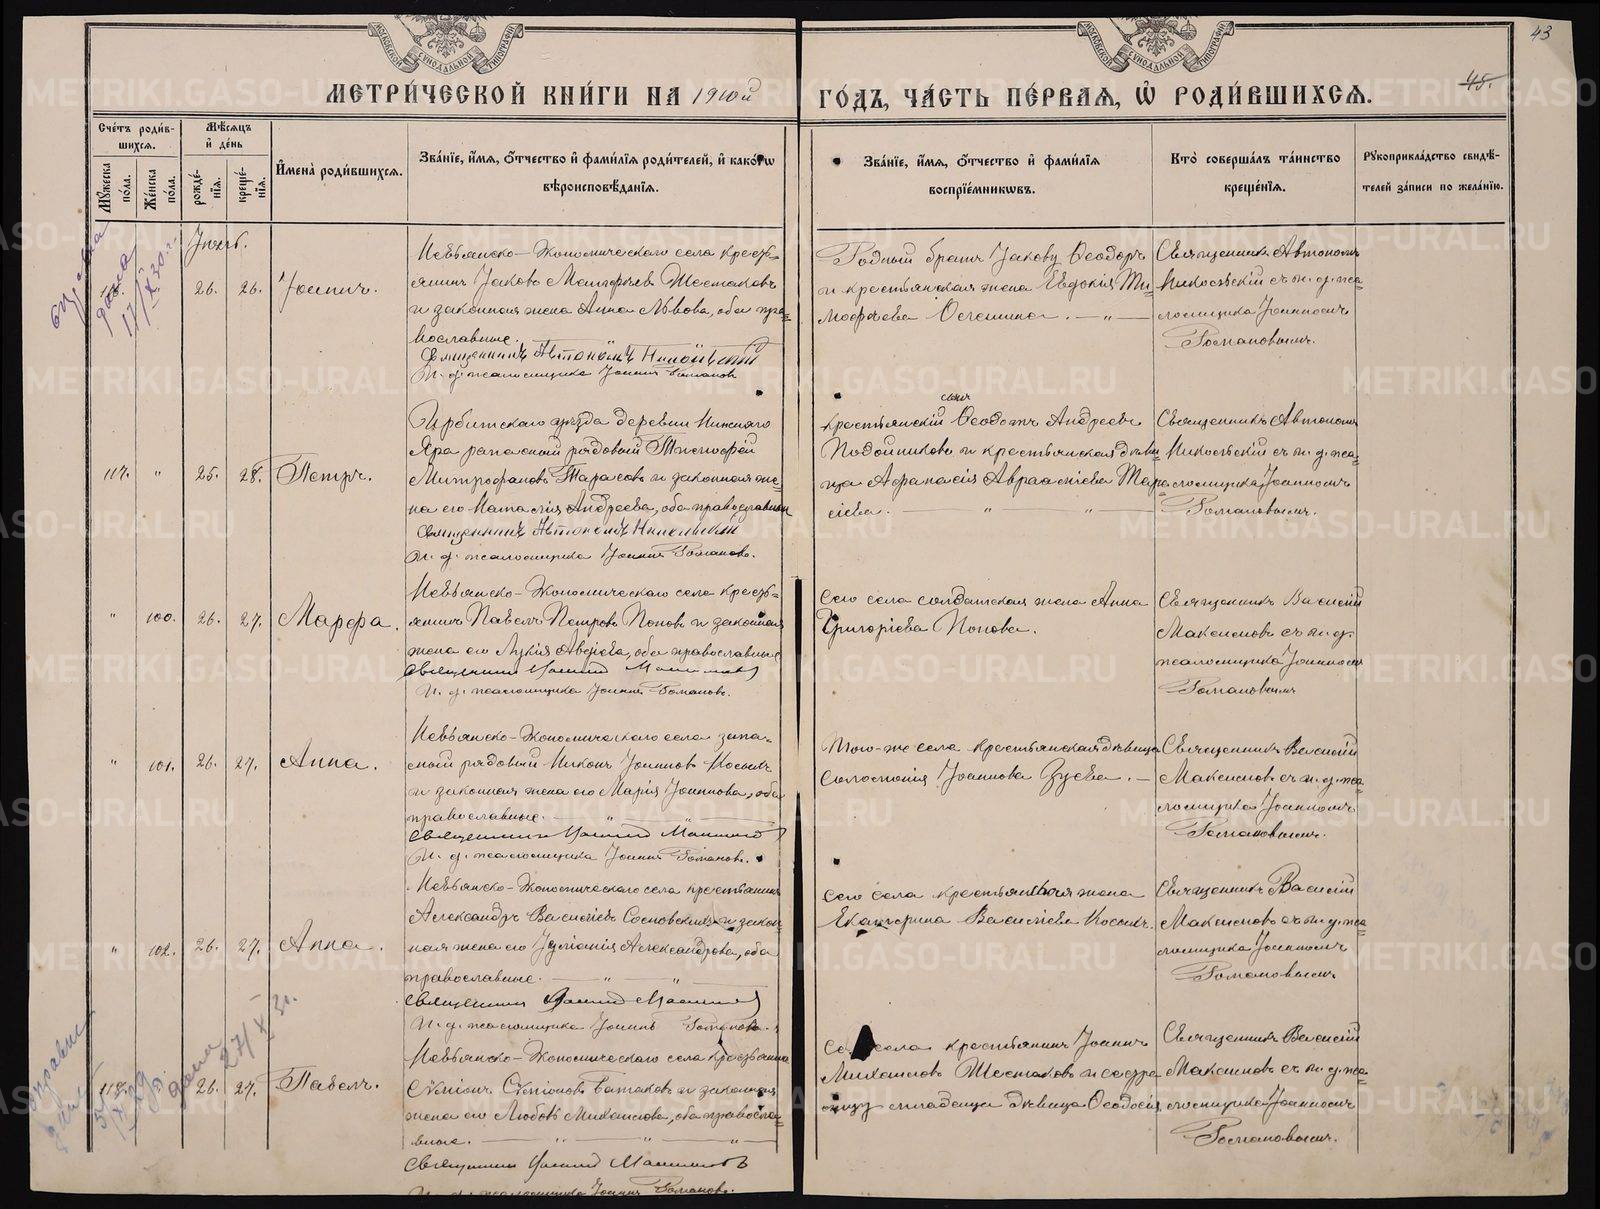 43
45.
МОСКОВСКОЙ СѴНОДАЛЬНОЙ ТИПОГРАФІИ
МОСКОВСКОЙ СѴНОДАЛЬНОЙ ТИПОГРАФІИ
МЕТРИ́ЧЕСКОЙ КНИ́ГИ НА 1910й ГО́ДЪ, ЧА́СТЬ ПЕ́РВАѦ, Ѽ РОДИ́ВШИХСѦ.
Сче́тъ роди́в-
шихсѧ.
Мꙋжеска по́ла.
Же́нска по́ла.
Мѣ́сѧцъ
и҆ де́нь
рожде́-
нїѧ.
креще́-
нїѧ.
И҆мена̀ роди́вшихсѧ.
Зва́нїе, и҆́мѧ, ѻ҆́тчество и҆ фами́лїѧ роди́телей, и҆ како́гѡ
вѣроисповѣ́данїѧ.
Зва́нїе, и҆́мѧ, ѻ҆́тчество и҆ фами́лїѧ
воспрїе́мникѡвъ.
Кто̀ соверша́лъ та́инство
креще́нїѧ.
Рꙋкоприкла́дство свидѣ́-
телей за́писи по жела́нїю.
26. 26. Іоаннъ.
Невьянско-Экономическаго села кресть-
янинъ Іаковъ Шестаковъ
и законная жена Анна Львова, оба пра-
вославные.
Священникъ Автономъ Никольскій
И. д. псаломщика Іоаннъ Романовъ
Родный братъ Іакову Ѳеодоръ
и крестьянская жена Евдокія Ти-
моѳеева
Священникъ Автономъ
Никольскій съ и. д. пса-
ломщика Іоанномъ
Романовымъ.
117. " 25. 28. Петръ.
Ирбитскаго уѣзда деревни
Яра запасный рядовый Тимоѳей
Митрофановъ Тарасовъ и законная же-
на его Наталія Андреева, оба православные
Священникъ Автономъ Никольскій
И. д. псаломщика Іоаннъ Романовъ.
сынъ
крестьянскій Ѳеодотъ Андреевъ
Подойниковъ и крестьянская дѣви-
ца Аѳанасія Аврааміева Тара-
сіева. — " — " —
Священникъ Автономъ
Никольскій съ и. д. пса-
ломщика Іоанномъ
Романовымъ.
" 100. 26. 27. Марѳа.
Невьянско-Экономическаго села кресть-
янинъ Павелъ Петровъ Поповъ и законная
жена его Лукія Авдіева, оба православные
Священникъ Василій Максимовъ
И. д. псаломщика Іоаннъ Романовъ.
Сего села солдатская жена Анна
Григоріева Попова.
Священникъ Василій
Максимовъ съ и. д.
псаломщика Іоанномъ
Романовымъ
" 101. 26. 27. Анна.
Невьянско-Экономическаго села запа-
сный рядовый Никонъ Іоанновъ Косыхъ
и законная жена его Марія Іоаннова, оба
православные. — " — " —
Священникъ Василій Максимовъ
И. д. псаломщика Іоаннъ Романовъ.
Того-же села крестьянская дѣвица
Соломонія Іоаннова Зуева. —
Священникъ Василій
Максимовъ съ и. д. пса-
ломщика Іоанномъ
Романовымъ.
" 102. 26. 27. Анна.
Невьянско-Экономическаго села крестьянинъ
Александръ Василіевъ Сосновскихъ и закон-
ная жена его Іуліанія Александрова, оба
православные. — " — " —
Священникъ Василій Максимовъ
И. д. псаломщика Іоаннъ Романовъ.
Сего села крестьянская жена
Екатерина Василіева Косыхъ.
Священникъ Василій
Максимовъ съ и. д. пса-
ломщика Іоанномъ
Романовымъ
118. 26. 27. Павелъ.
Невьянско-Экономическаго села крестьянинъ
Сѵміонъ Сѵміоновъ Батаковъ и законная
жена его Любовь Михаилова, оба православ-
ные. — " — " — " —
Священникъ Василій Максимовъ
И. д. псаломщика Іоаннъ Романовъ.
села крестьянинъ Іоаннъ
Михаиловъ Шестаковъ и сестра
младенца дѣвица Ѳеодосія
Священникъ Василій
Максимовъ съ и. д. пса-
ломщика Іоанномъ
Романовымъ.
METRIKI.GASO-URAL.RU